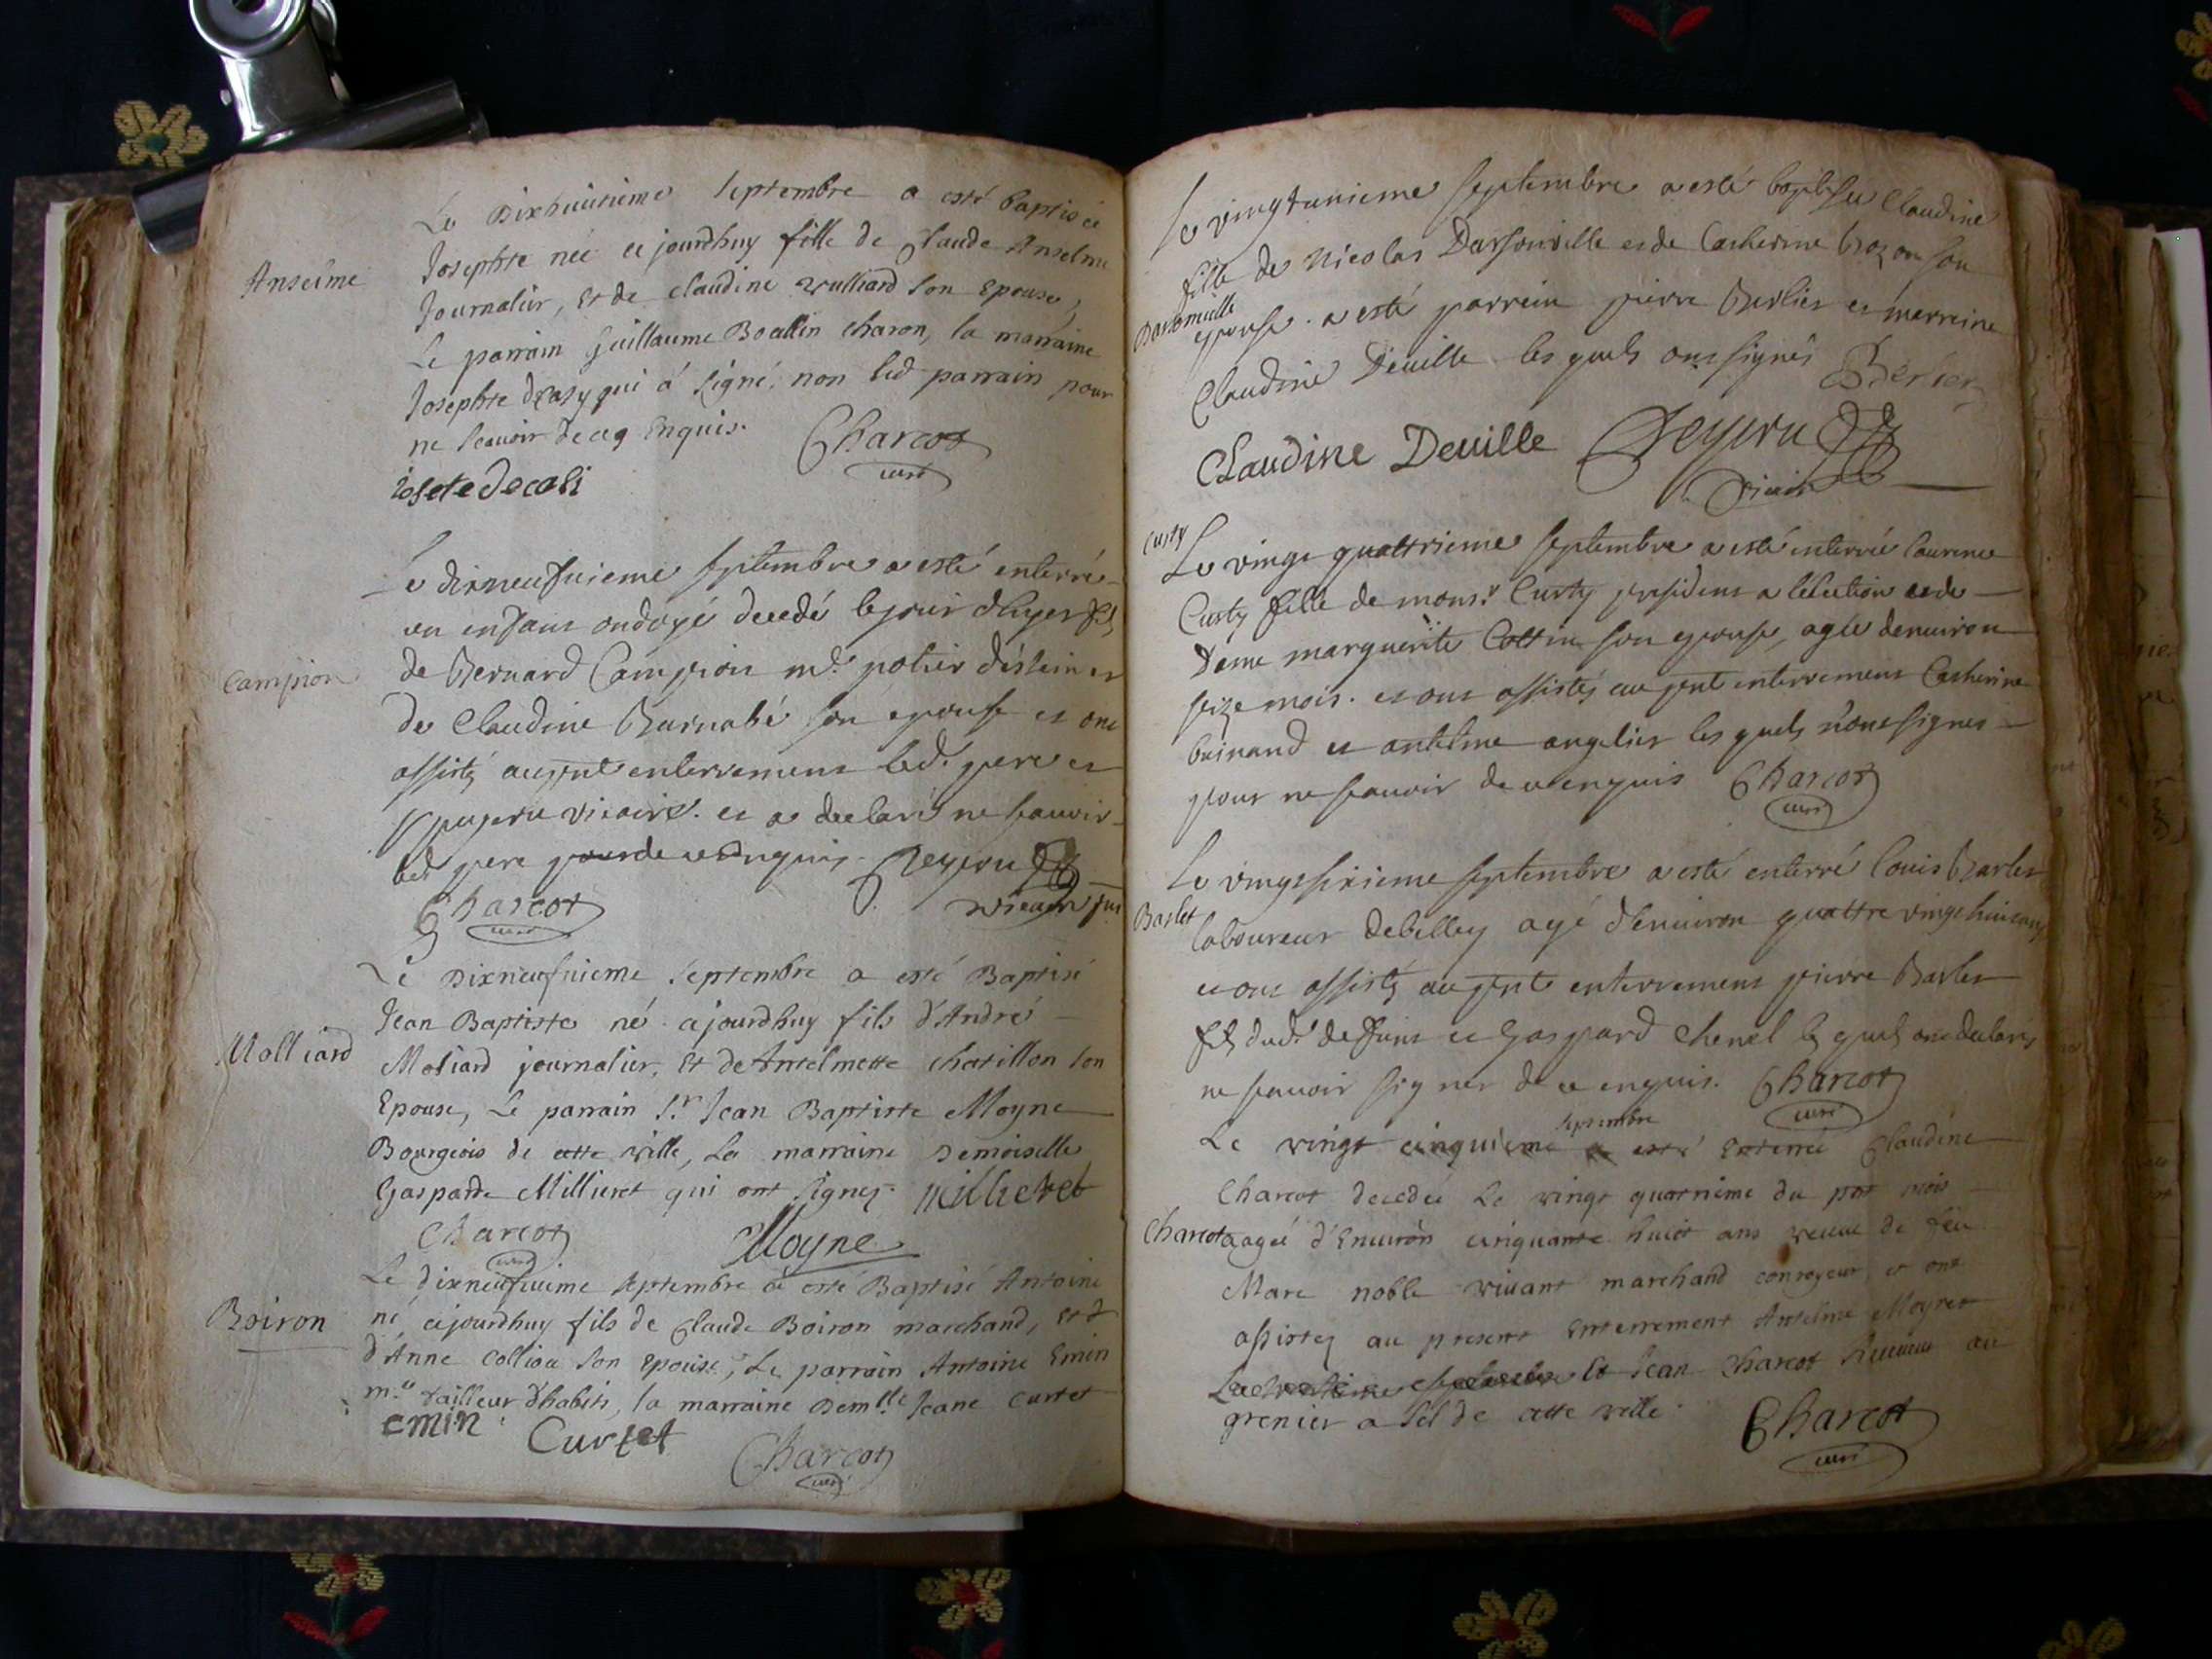 Le Dixhuitieme Septembre a esté baptisée
Anselme
Josephte née ce jourdhuy fille de Claude Anselme
Journalier, Et de claudine vulliard son Epouse,
Le parrain Guillaume Boallin charon, la marraine
Josephte decasy qui á signé, non led parrain pour
ne scavoir de ceq Enquis.
Charcot
curé
iosete decasi
Le dixneufuieme septembre a esté enterré
un enfant ondoyé decedé le jour d'hyer fils
Campion
de Bernard Campion md. potier d'éstein et
de Claudine Barnabé son epouse et ont
assistéz au pnt enterrement led. pere et
peyeru vicaire. et a declaré ne scauoir
led pere de ce enquis. Peyeru
Charcot
curé
vicaire
Le Dixneufuieme Septembre a esté Baptisé
Jean Baptiste né cejourdhuy fils d'André
Molliard
Moliard journalier, Et de Antelmette chatillon son
Epouse, Le parrain S.r Jean Baptiste Moyne
Bourgeois de cette ville, La marraine Demoiselle
Gasparde Millieret qui ont signez. Millieret
Charcot
curé
Moyne
Le dixneufuieme Septembre a esté Baptisé Antoine
Boiron
né cejourdhuy fils de Claude Boiron marchand, et
d'Anne Colliou son Epouse, Le parrain Antoine Emin
m.e tailleur d'habits, la marraine Dem.lle Jeane Curtet
Emin
Curtet
Charcot
curé
Le vingtunieme septembre a esté baptisée Claudine
fille de Nicolas Darsonville et de Catherine son
Darsonville
epouse. a esté parrein pierre Berlier et marreine
Claudine Deville les quels ont signés
Berlier
Claudine Deuille
Peyeru
vicaire
Custy
Le vingt quattrieme septembre a esté enterrée laurence
Custy fille de mons.r Custy president a lélection et de
Dame marguerite Cottin son epouse, agée denuiron
seize mois. et ont assistéz au pnt enterrement Catherine
buinand et antelme angelier les quels n'ont signes
pour ne scauoir de ce enquis
Charcot
curé
Le vingtsixieme septembre a esté enterré Louis Barlet
Barlet
laboureur de belley agé d'enuiron quattre vingt huit ans
et ont assistéz au pnt enterrement pierre Barlet
fils dud. deffunt et Gaspard Chenel les quels ont declaréz
ne scauoir signer de ce enquis.
Charcot
curé
septembre
Le vingt cinquieme a esté Enterrée Claudine
Charcot decedée Le vingt quatrieme du pnt mois
Charcot
agée d'Enuiron cinquante huict ans veuue de feu
Marc noble viuant marchand conroyeur et ont
assistez au present Enterrement Antelme Moyret
Et Jean Charcot Receueur au
grenier a sel de cette ville.
Charcot
curé